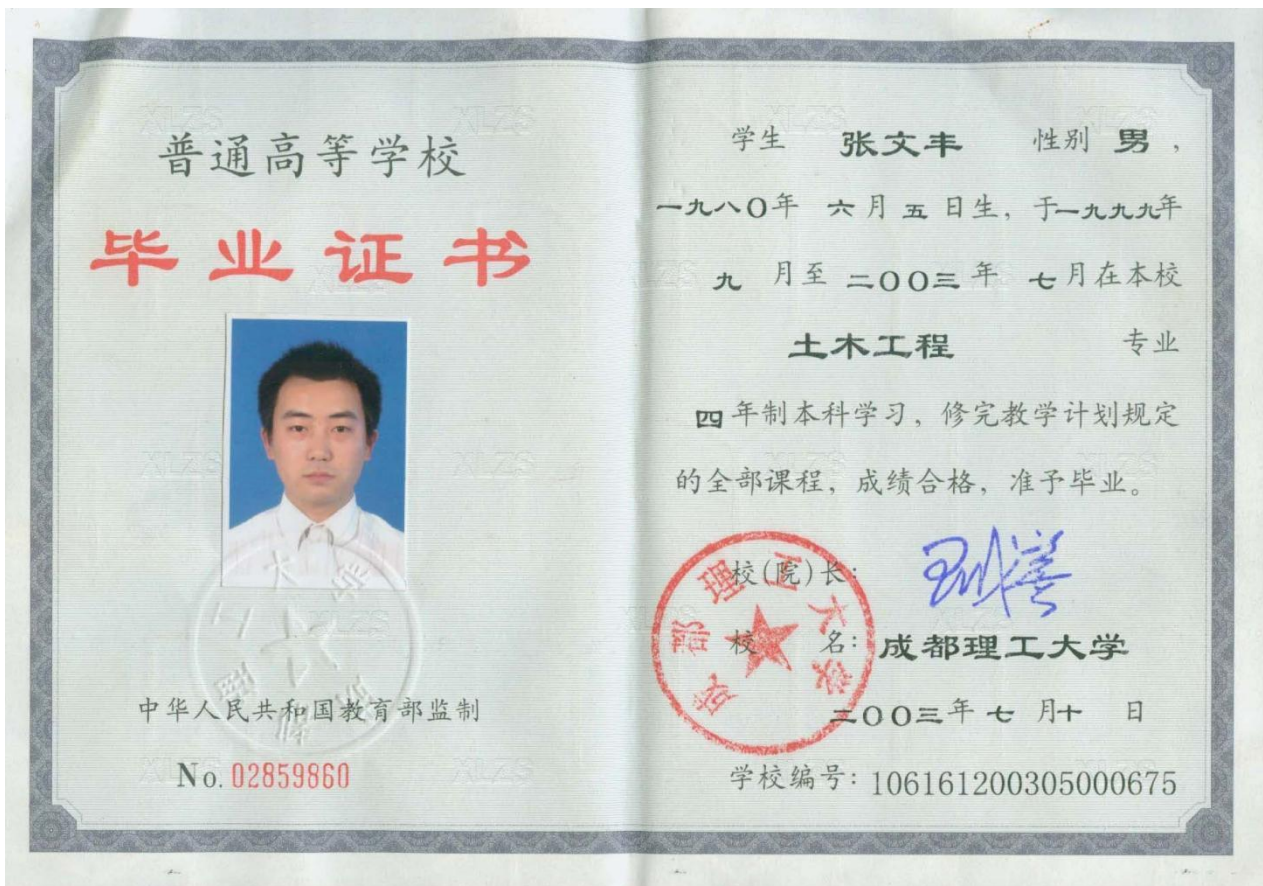 普通高等学校
毕业证书
中华人民共和国教育部监制
No. 02859860
学生 张文丰 性别 男，
一九八〇年 六月五日生，于一九九九年
九 月至 二〇〇三年 七月在本校
土木工程 专业
四年制本科学习，修完教学计划规定
的全部课程，成绩合格，准予毕业。
校(院)长：
校 名：成都理工大学
成都理工大学
二〇〇三年 七 月十 日
学校编号：106161200305000675